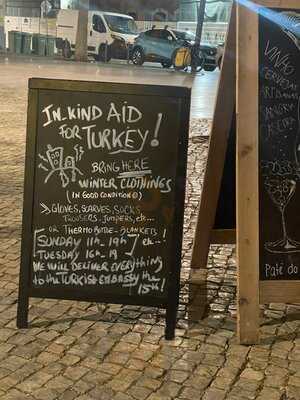 IN-KIND AID
FOR TURKEY!
BRING HERE
WINTER CLOTHINGS
(IN GOOD CONDITION)
GLOVES, SCARVES, SOCKS
TROUSERS, JUMPERS, etc...
OR THERMO BOTTLE - BLANKETS!
SUNDAY 11h-19h etc...
TUESDAY 16h-19
WE WILL DELIVER EVERYTHING
to the TURKISH EMBASSY the
15th!
VINHO
CERVEJA
Paté do